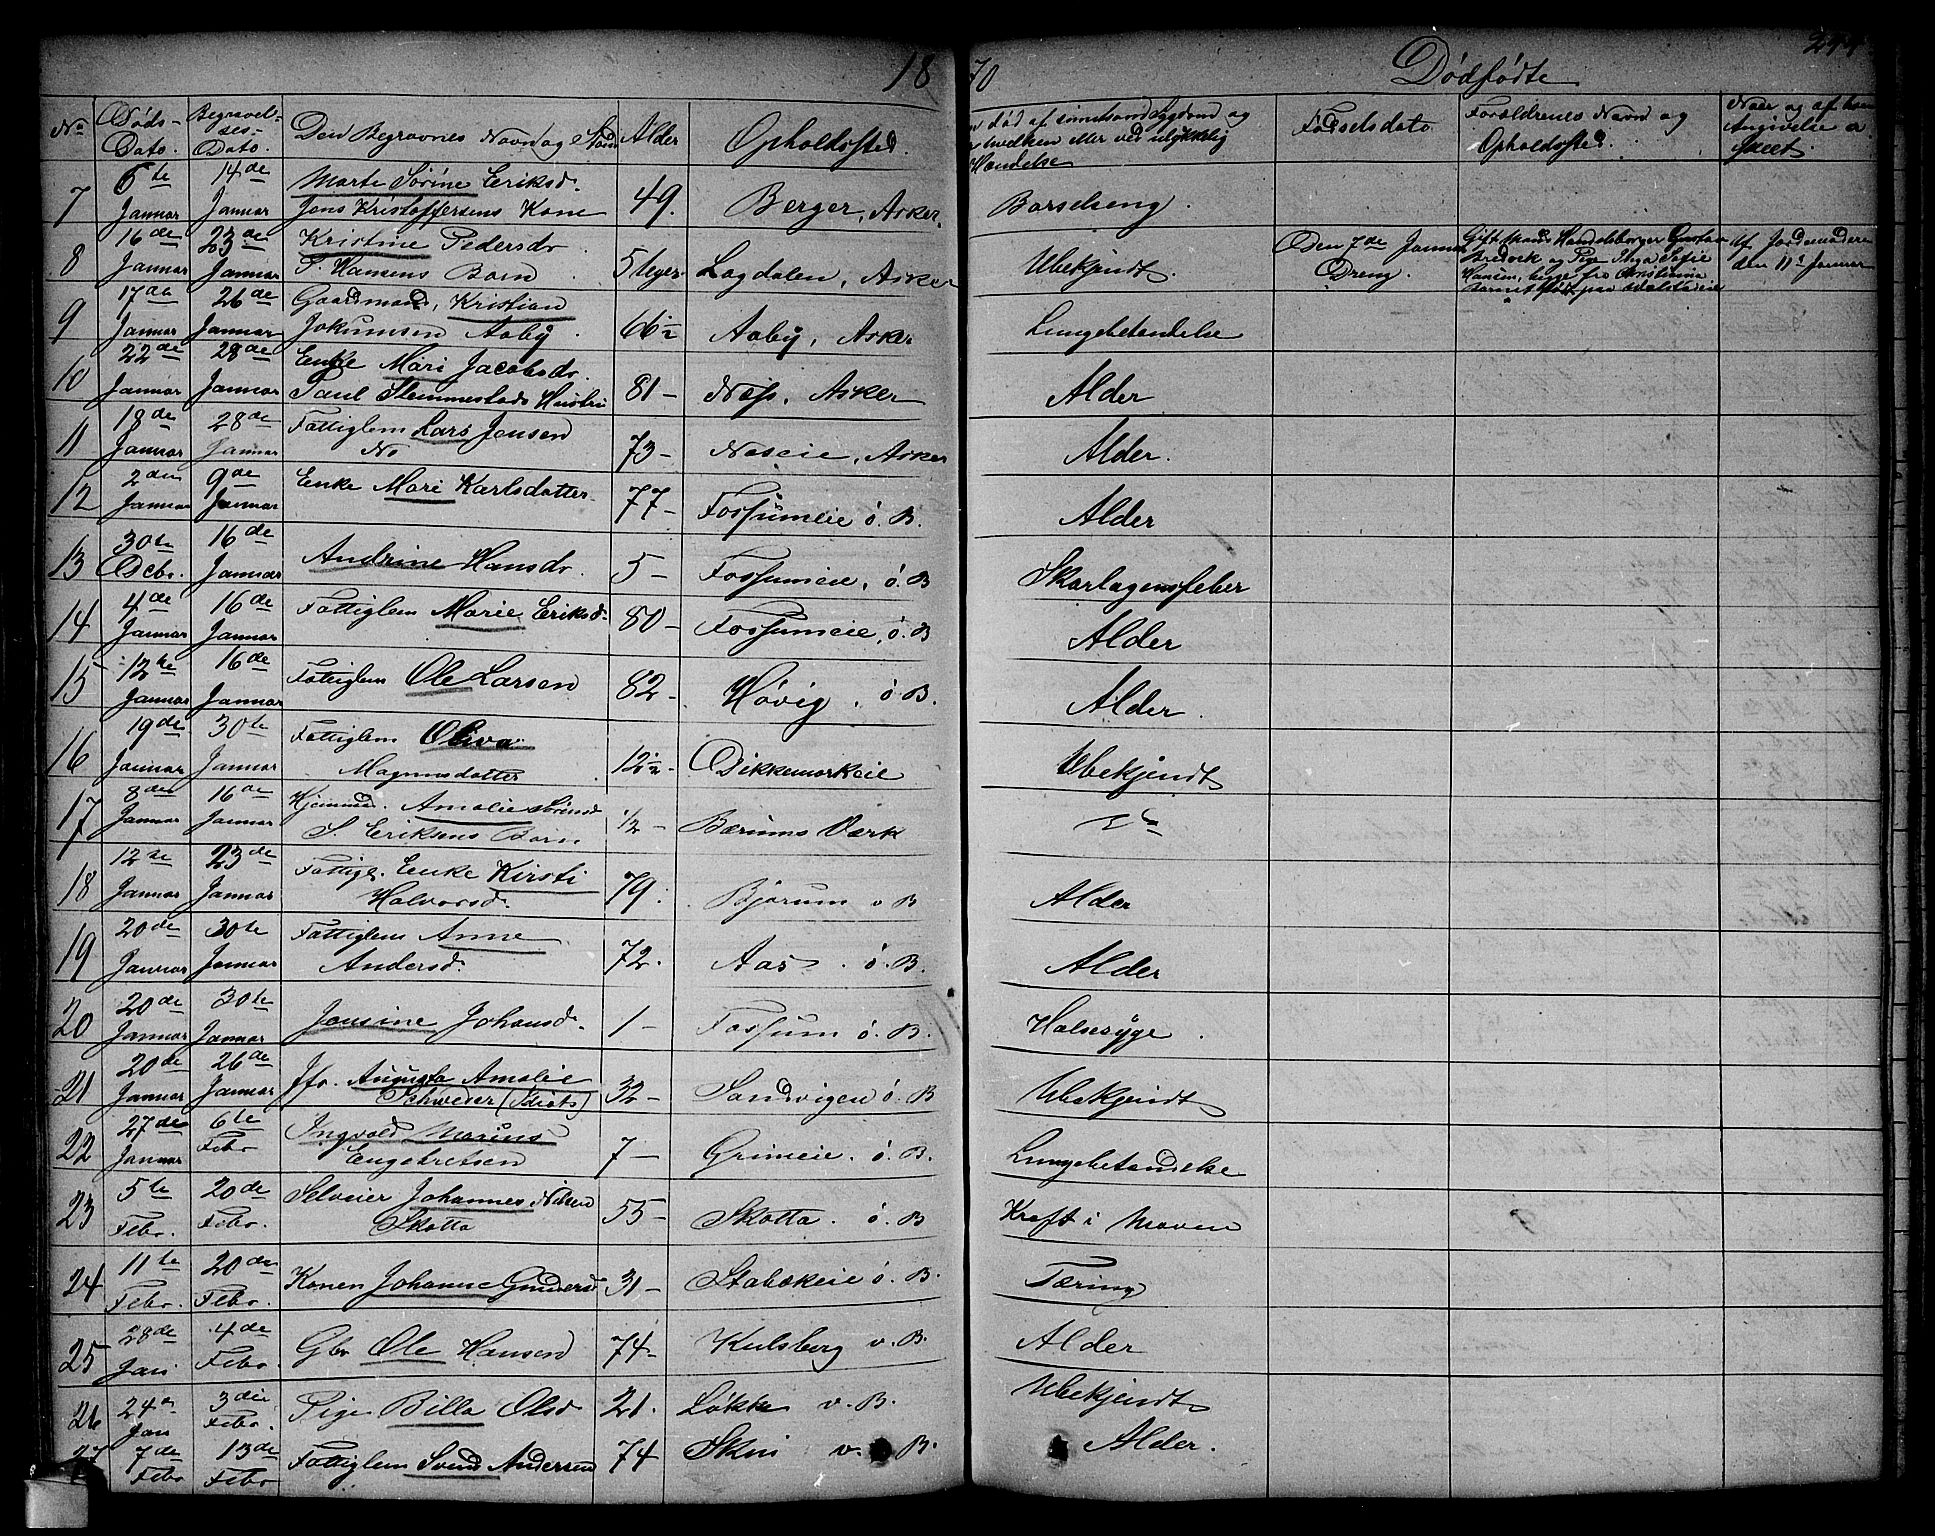 1870 Dødfødte
No Døds-Dato. Begravelses-Dato. Den Begravnes Navn og Alder Opholdssted. død af smitsom Sygdom og hvilken eller ved ulykkelig Hændelse Fødselsdato Forældrenes Navn og Opholdssted. Naar og af hvem Angivelse er skeet.
7 6te Januar 14de Januar Marte Sørine Eriksd. Jens Kristoffersens Kone 49. Berger, Asker. Barselseng.
8 16de Januar 23de Januar Kristine Pedersdr P. Hansens Barn 5 Uger Lagdalen, Asker Ubekjendt. Den 7de Januar Dreng. Gift Mand Handelsborger Gustav Bredvek og Pige Inga Sofie Hansen, begge fra Christiania Barnet født paa Af Jordemoderen den 11te Januar
9 17de Januar 26de Januar Gaardmand, Kristian Jokumsen Aaby. 66½ Aaby, Asker Lungebetændelse
10 22de Januar 28de Januar Enke Mari Jacobsdr. Paul Slemmestads Hustru 81 - Næs, Asker Alder
11 18de Januar 28de Januar Fattiglem Lars Jensen Næs 73 - Neseie, Asker Alder.
12 2den Januar 9de Januar Enke Mari Karlsdatter 77 - Fossumeie ö. B. Alder
13 30te Decbr. 16de Januar Andrine Hansdr. 5 - Fossumeie, ö. B Skarlagensfeber
14 4de Januar 16de Januar Fattiglem Marie Eriksd. 80 - Fossumeie, ö. B Alder
15 12te Januar 16de Januar Fattiglem Ole Larsen 82 - Høvig. ö B. Alder.
16 19de Januar 30te Januar Fattiglem Oliva Magnusdatter 12½ - Dikkemarkeie Ubekjendt
17 8de Januar 16de Januar Hjemmed. Amalie Sørensd S. Eriksens Barn ½ - Bærums Værk
18 12te Januar 23de Januar Fattigl. Enke Kirsti Halvorsd. 79. Bjørum v B Alder
19 20de Januar 30te Januar Fattiglem Anne Andersd. 72. Aas. ö. B. Alder
20 20de Januar 30te Januar Jensine Johansd. 1 - Fossum ö. B. Halsesyge.
21 20de Januar 26de Januar Jfr. Augusta Amalie Schweder (Idiot) 32 - Sandvigen ö. B Ubekjendt
22 27de Januar 6te Febr Ingvald Marius Engebretsen 7 - Grimeie. ö. B. Lungebetændelse
23 5te Febr. 20de Febr. Selveier Johannes Nilsen Skotta 55 - Skotta. ö. B Kræft i Maven
24 11te Febr. 20de Febr. Konen Johanne Gundersd 31 - Stabækeie ö. B. Tæring
25 28de Jan 4de Febr. Gbr Ole Hansen 74 - Kulsberg v. B. Alder
26 24de Jan 3die Febr. Pige Billa Olsd 21. Løkke v. B. Ubekjendt
27 7de Febr 13de Febr Fattiglem Svend Andersen 74 Skui v. B. Alder.